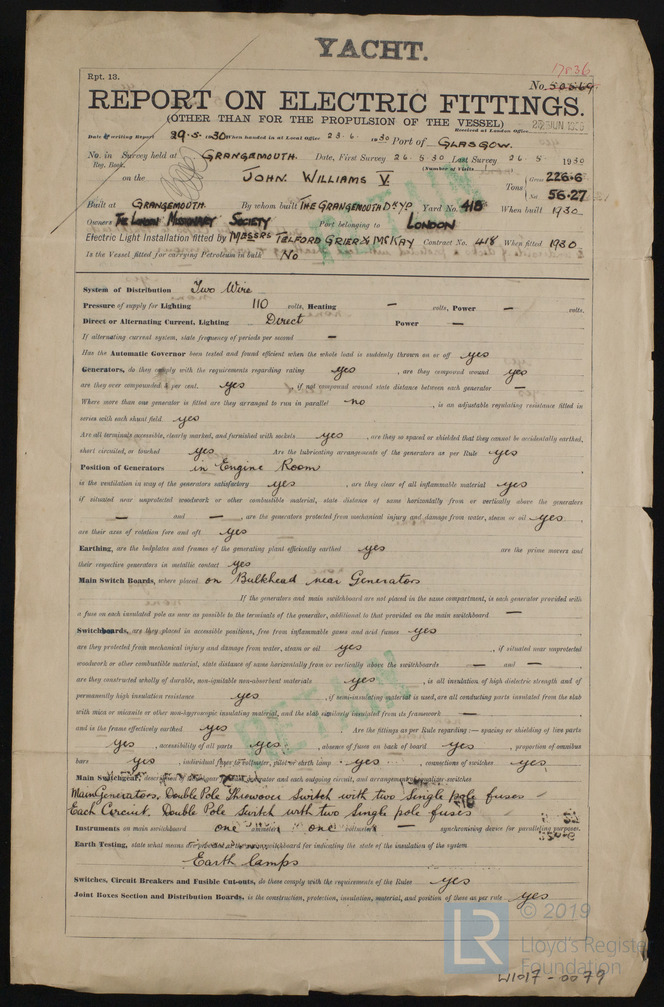 YACHT.
Rpt. 13.
17836
No. 50569
REPORT ON ELECTRIC FITTINGS.
(OTHER THAN FOR THE PROPULSION OF THE VESSEL)
Received at London Office
Date of writing Report 29.5.1930 When handed in at Local Office 23.6.1930 Port of GLASGOW.
No. in Survey held at GRANGEMOUTH. Date, First Survey 26.5.30 Last Survey 26.5.1930
Reg. Book. (Number of Visits
on the JOHN WILLIAMS V Tons Gross 226.6
Net 56.27
Built at GRANGEMOUTH. By whom built THE GRANGEMOUTH Dkyd Yard No. 418 When built 1930
Owners THE LONDON MISSIONARY SOCIETY Port belonging to LONDON
Electric Light Installation fitted by MESSRS TELFORD GRIER & McKAY Contract No. 418 When fitted 1930
Is the Vessel fitted for carrying Petroleum in bulk No
RETAIN
System of Distribution Two Wire
Pressure of supply for Lighting 110 volts, Heating — volts, Power — volts.
Direct or Alternating Current, Lighting Direct Power —
If alternating current system, state frequency of periods per second —
Has the Automatic Governor been tested and found efficient when the whole load is suddenly thrown on or off yes
Generators, do they comply with the requirements regarding rating yes, are they compound wound yes
are they over compounded 5 per cent. yes, if not compound wound state distance between each generator —
Where more than one generator is fitted are they arranged to run in parallel no, is an adjustable regulating resistance fitted in
series with each shunt field yes
Are all terminals accessible, clearly marked, and furnished with sockets yes, are they so spaced or shielded that they cannot be accidentally earthed,
short circuited, or touched yes Are the lubricating arrangements of the generators as per Rule yes
Position of Generators in Engine Room
is the ventilation in way of the generators satisfactory yes, are they clear of all inflammable material yes
if situated near unprotected woodwork or other combustible material, state distance of same horizontally from or vertically above the generators
— and —, are the generators protected from mechanical injury and damage from water, steam or oil yes
are their axes of rotation fore and aft yes
Earthing, are the bedplates and frames of the generating plant efficiently earthed yes are the prime movers and
their respective generators in metallic contact yes
Main Switch Boards, where placed on Bulkhead near Generators
If the generators and main switchboard are not placed in the same compartment, is each generator provided with
a fuse on each insulated pole as near as possible to the terminals of the generator, additional to that provided on the main switchboard —
Switchboards, are they placed in accessible positions, free from inflammable gases and acid fumes yes
are they protected from mechanical injury and damage from water, steam or oil yes, if situated near unprotected
woodwork or other combustible material, state distance of same horizontally from or vertically above the switchboards — and —
are they constructed wholly of durable, non-ignitable non-absorbent materials yes, is all insulation of high dielectric strength and of
permanently high insulation resistance yes, if semi-insulating material is used, are all conducting parts insulated from the slab
with mica or micanite or other non-hygroscopic insulating material, and the slab similarly insulated from its framework —
and is the frame effectively earthed yes Are the fittings as per Rule regarding :— spacing or shielding of live parts
yes, accessibility of all parts yes, absence of fuses on back of board yes, proportion of omnibus
bars yes, individual fuses to voltmeter, pilot or earth lamp yes, connections of switches yes
RETAIN
Main Switchgear, generator and each outgoing circuit, and arrangement switches
Main Generators, Double Pole Throwover Switch with two Single pole fuses
Each Circuit. Double Pole Switch with two Single pole fuses
Instruments on main switchboard one ammeter one voltmeter — synchronising device for paralleling purposes.
Earth Testing, state what means switchboard for indicating the state of the insulation of the system
Earth lamps
Switches, Circuit Breakers and Fusible Cut-outs, do these comply with the requirements of the Rules yes
Joint Boxes Section and Distribution Boards, is the construction, protection, insulation, material, and position of these as per rule yes
© 2019
LR Lloyd's Register
Foundation
W1017-0079